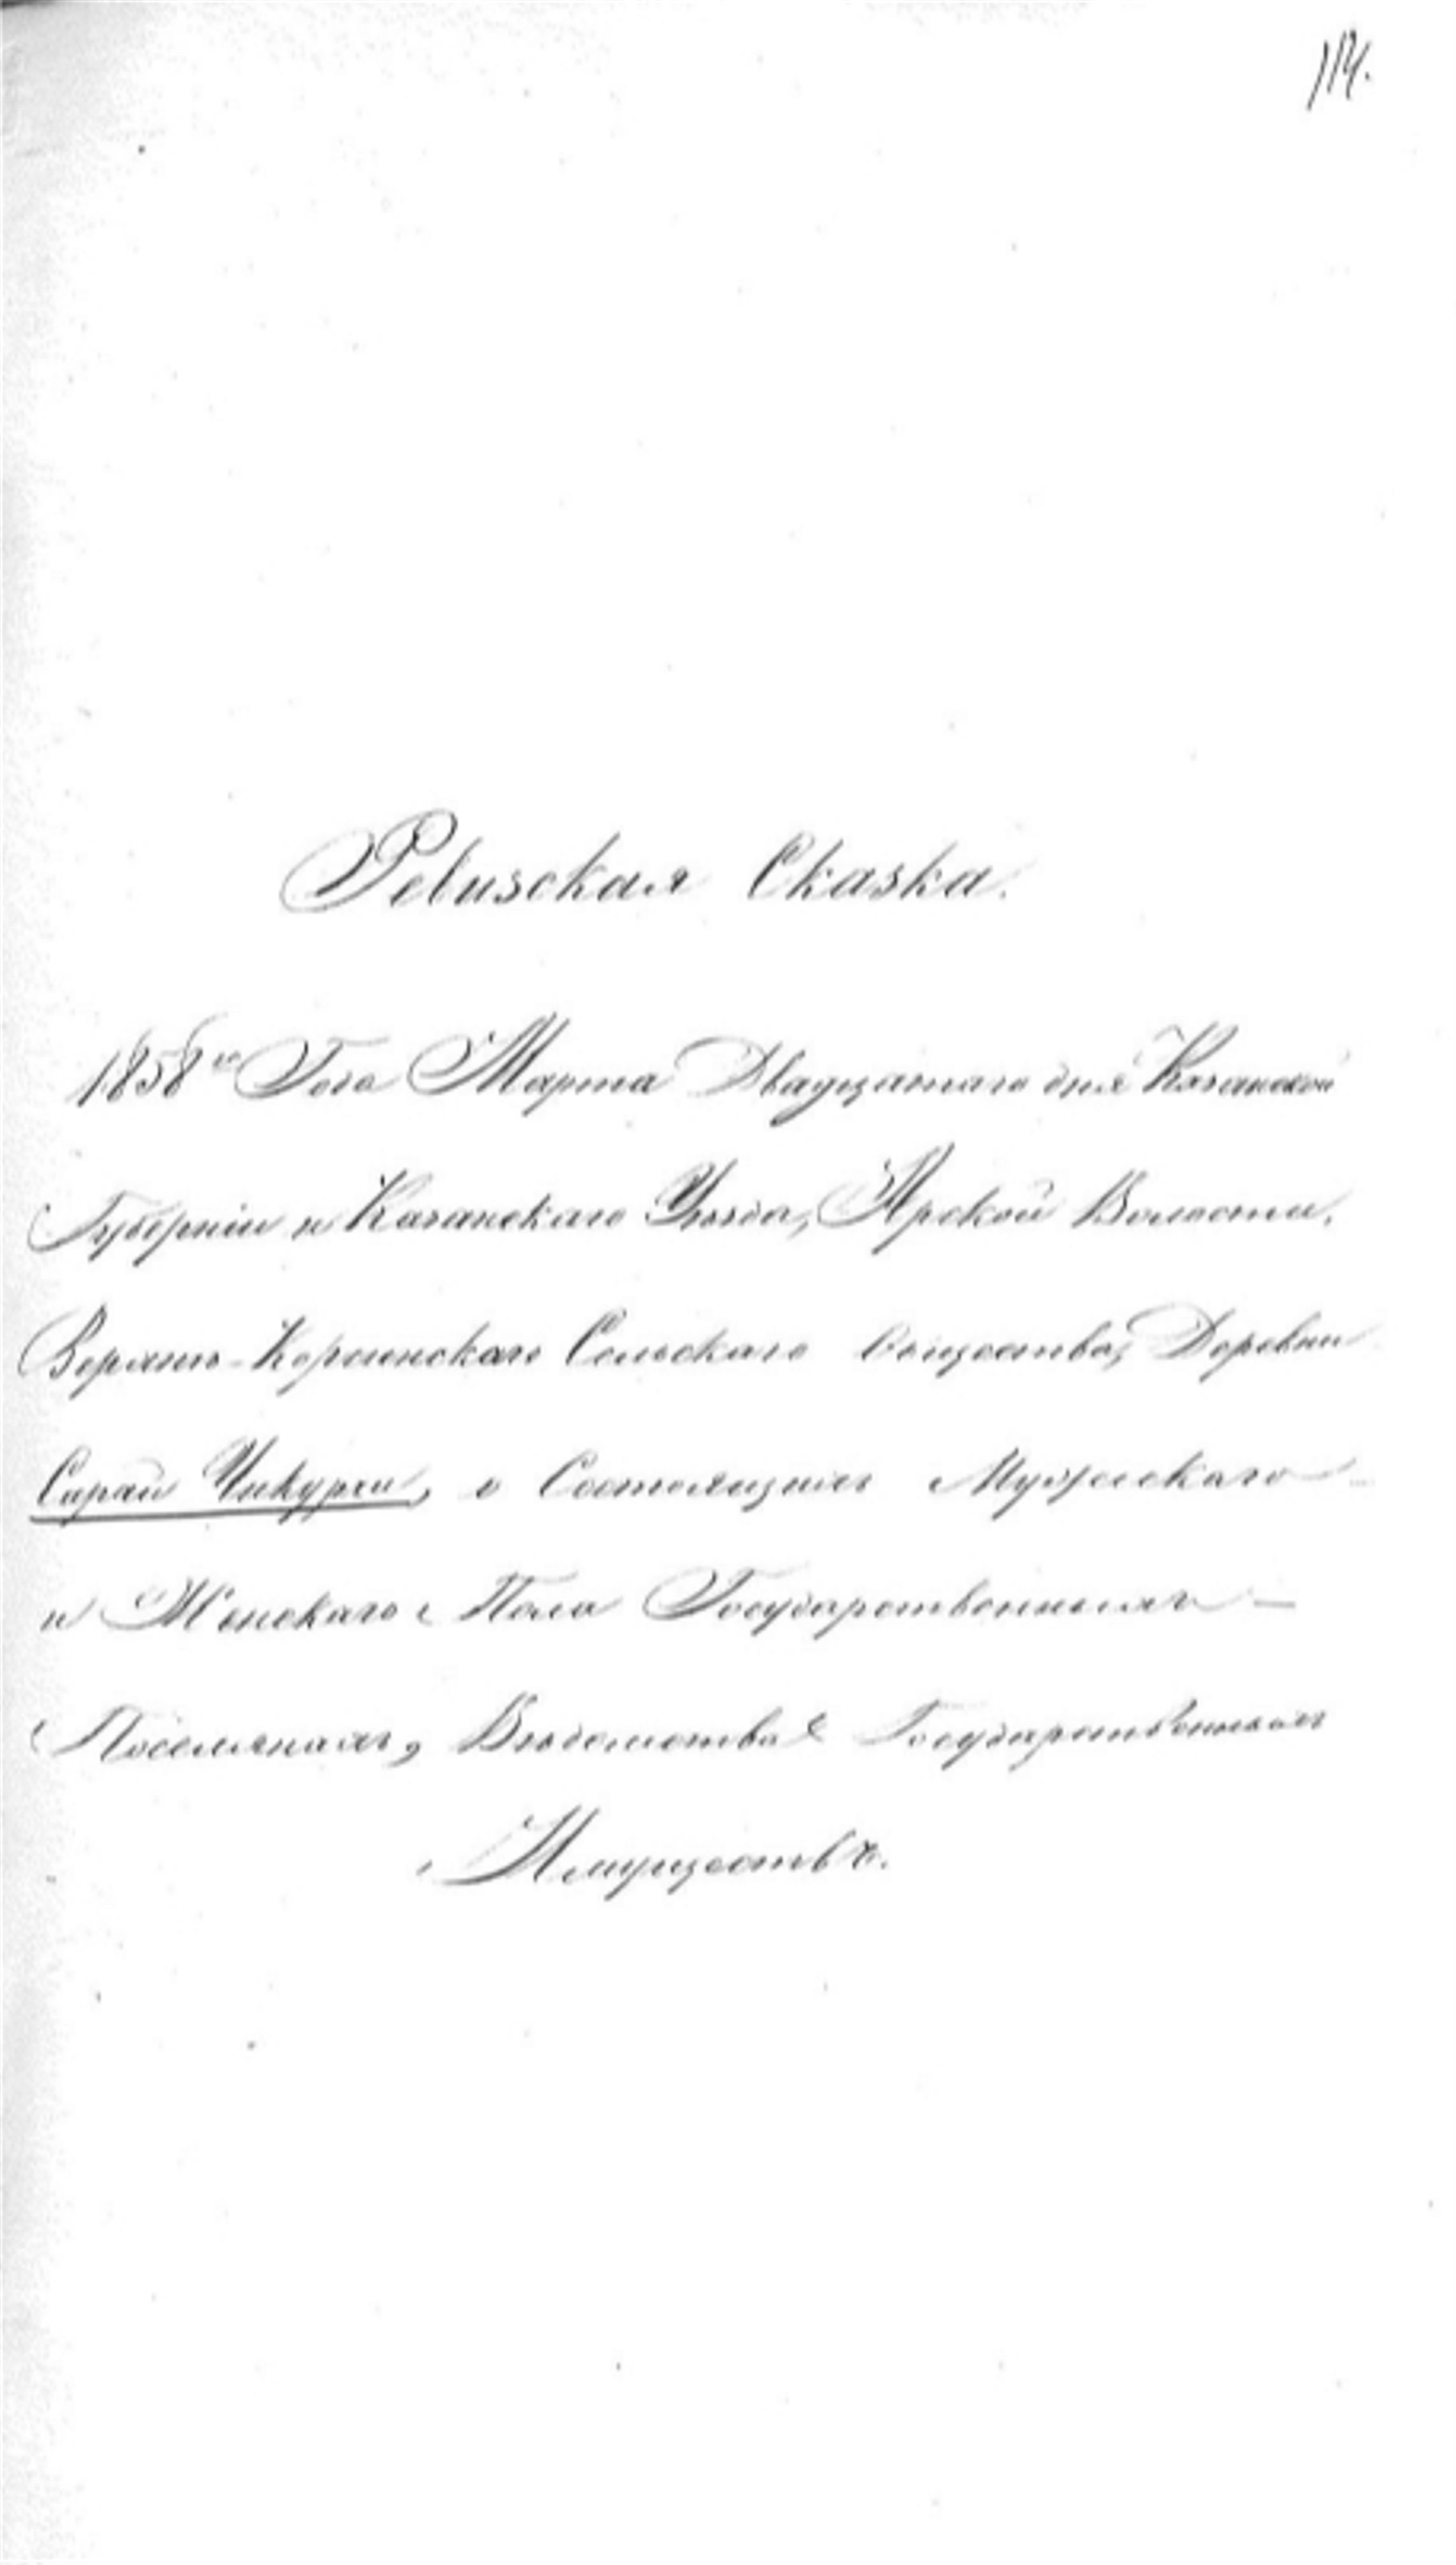 114.
Ревизская Сказка.
1858го Года Марта Двадцатаго дня Казанской
Губерніи и Казанскаго Уѣзда, Арской Волости,
Верхне-Корсинскаго Сельскаго Общества, Деревни
Сарай Чикурчи, о Состоящихъ Мужескаго
и Женскаго Пола Государственныхъ –
Поселянахъ, Вѣдомства Государственныхъ
Имуществъ.